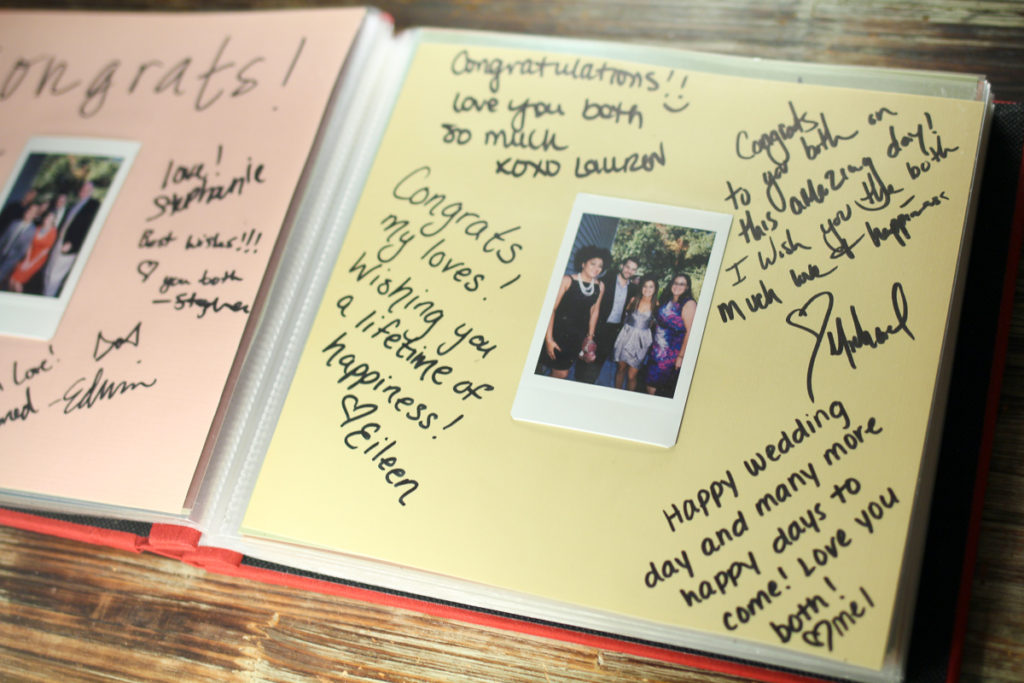 Congrats!
love!
Stephanie
Best wishes!!!
♡ you both
—Stephen
love!
—Edwin
Congratulations!!
love you both
so much
xoxo Lauren
Congrats
my loves!
Wishing you
a lifetime of
happiness!
♡Eileen
Congrats
to you both on
this amazing day!
I wish you the both
much love & happiness
♡ Michael
Happy wedding
day and many more
happy days to
come! Love you
both!
♡mel